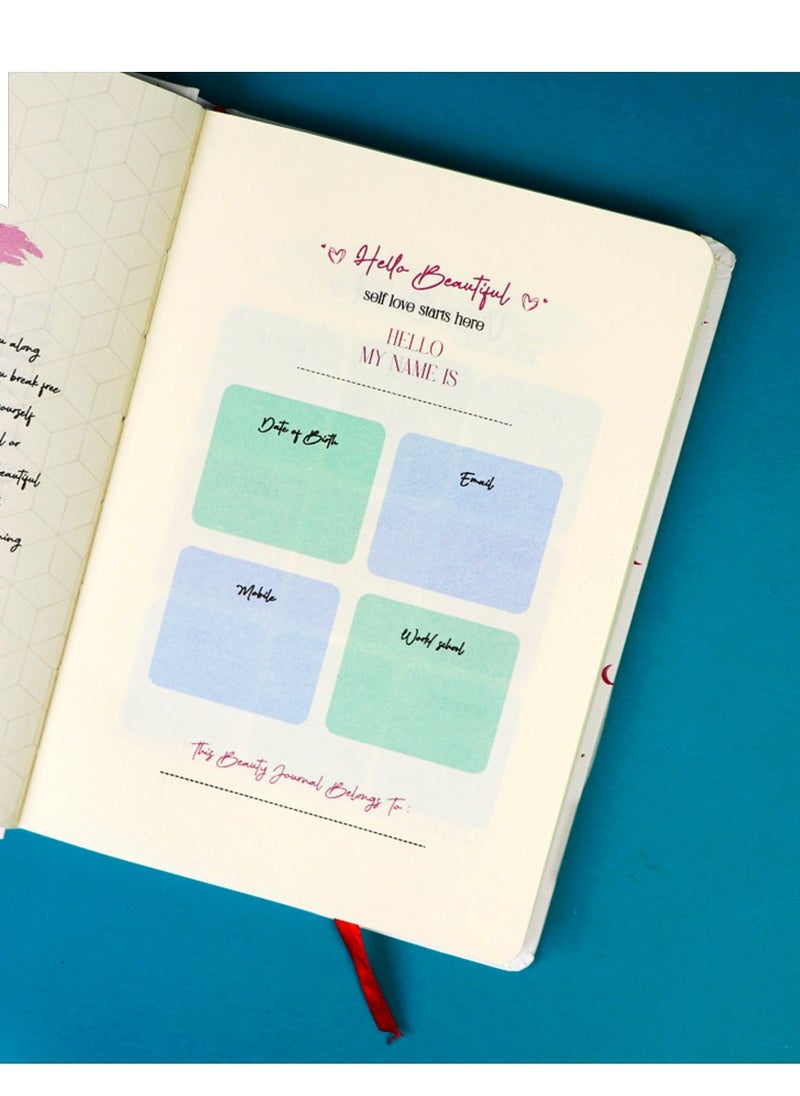 along
u break free
ourself
or
eautiful
ning
Hello Beautiful
self love starts here
HELLO
MY NAME IS
Date of Birth
Email
Mobile
Work/ school
This Beauty Journal Belongs To :